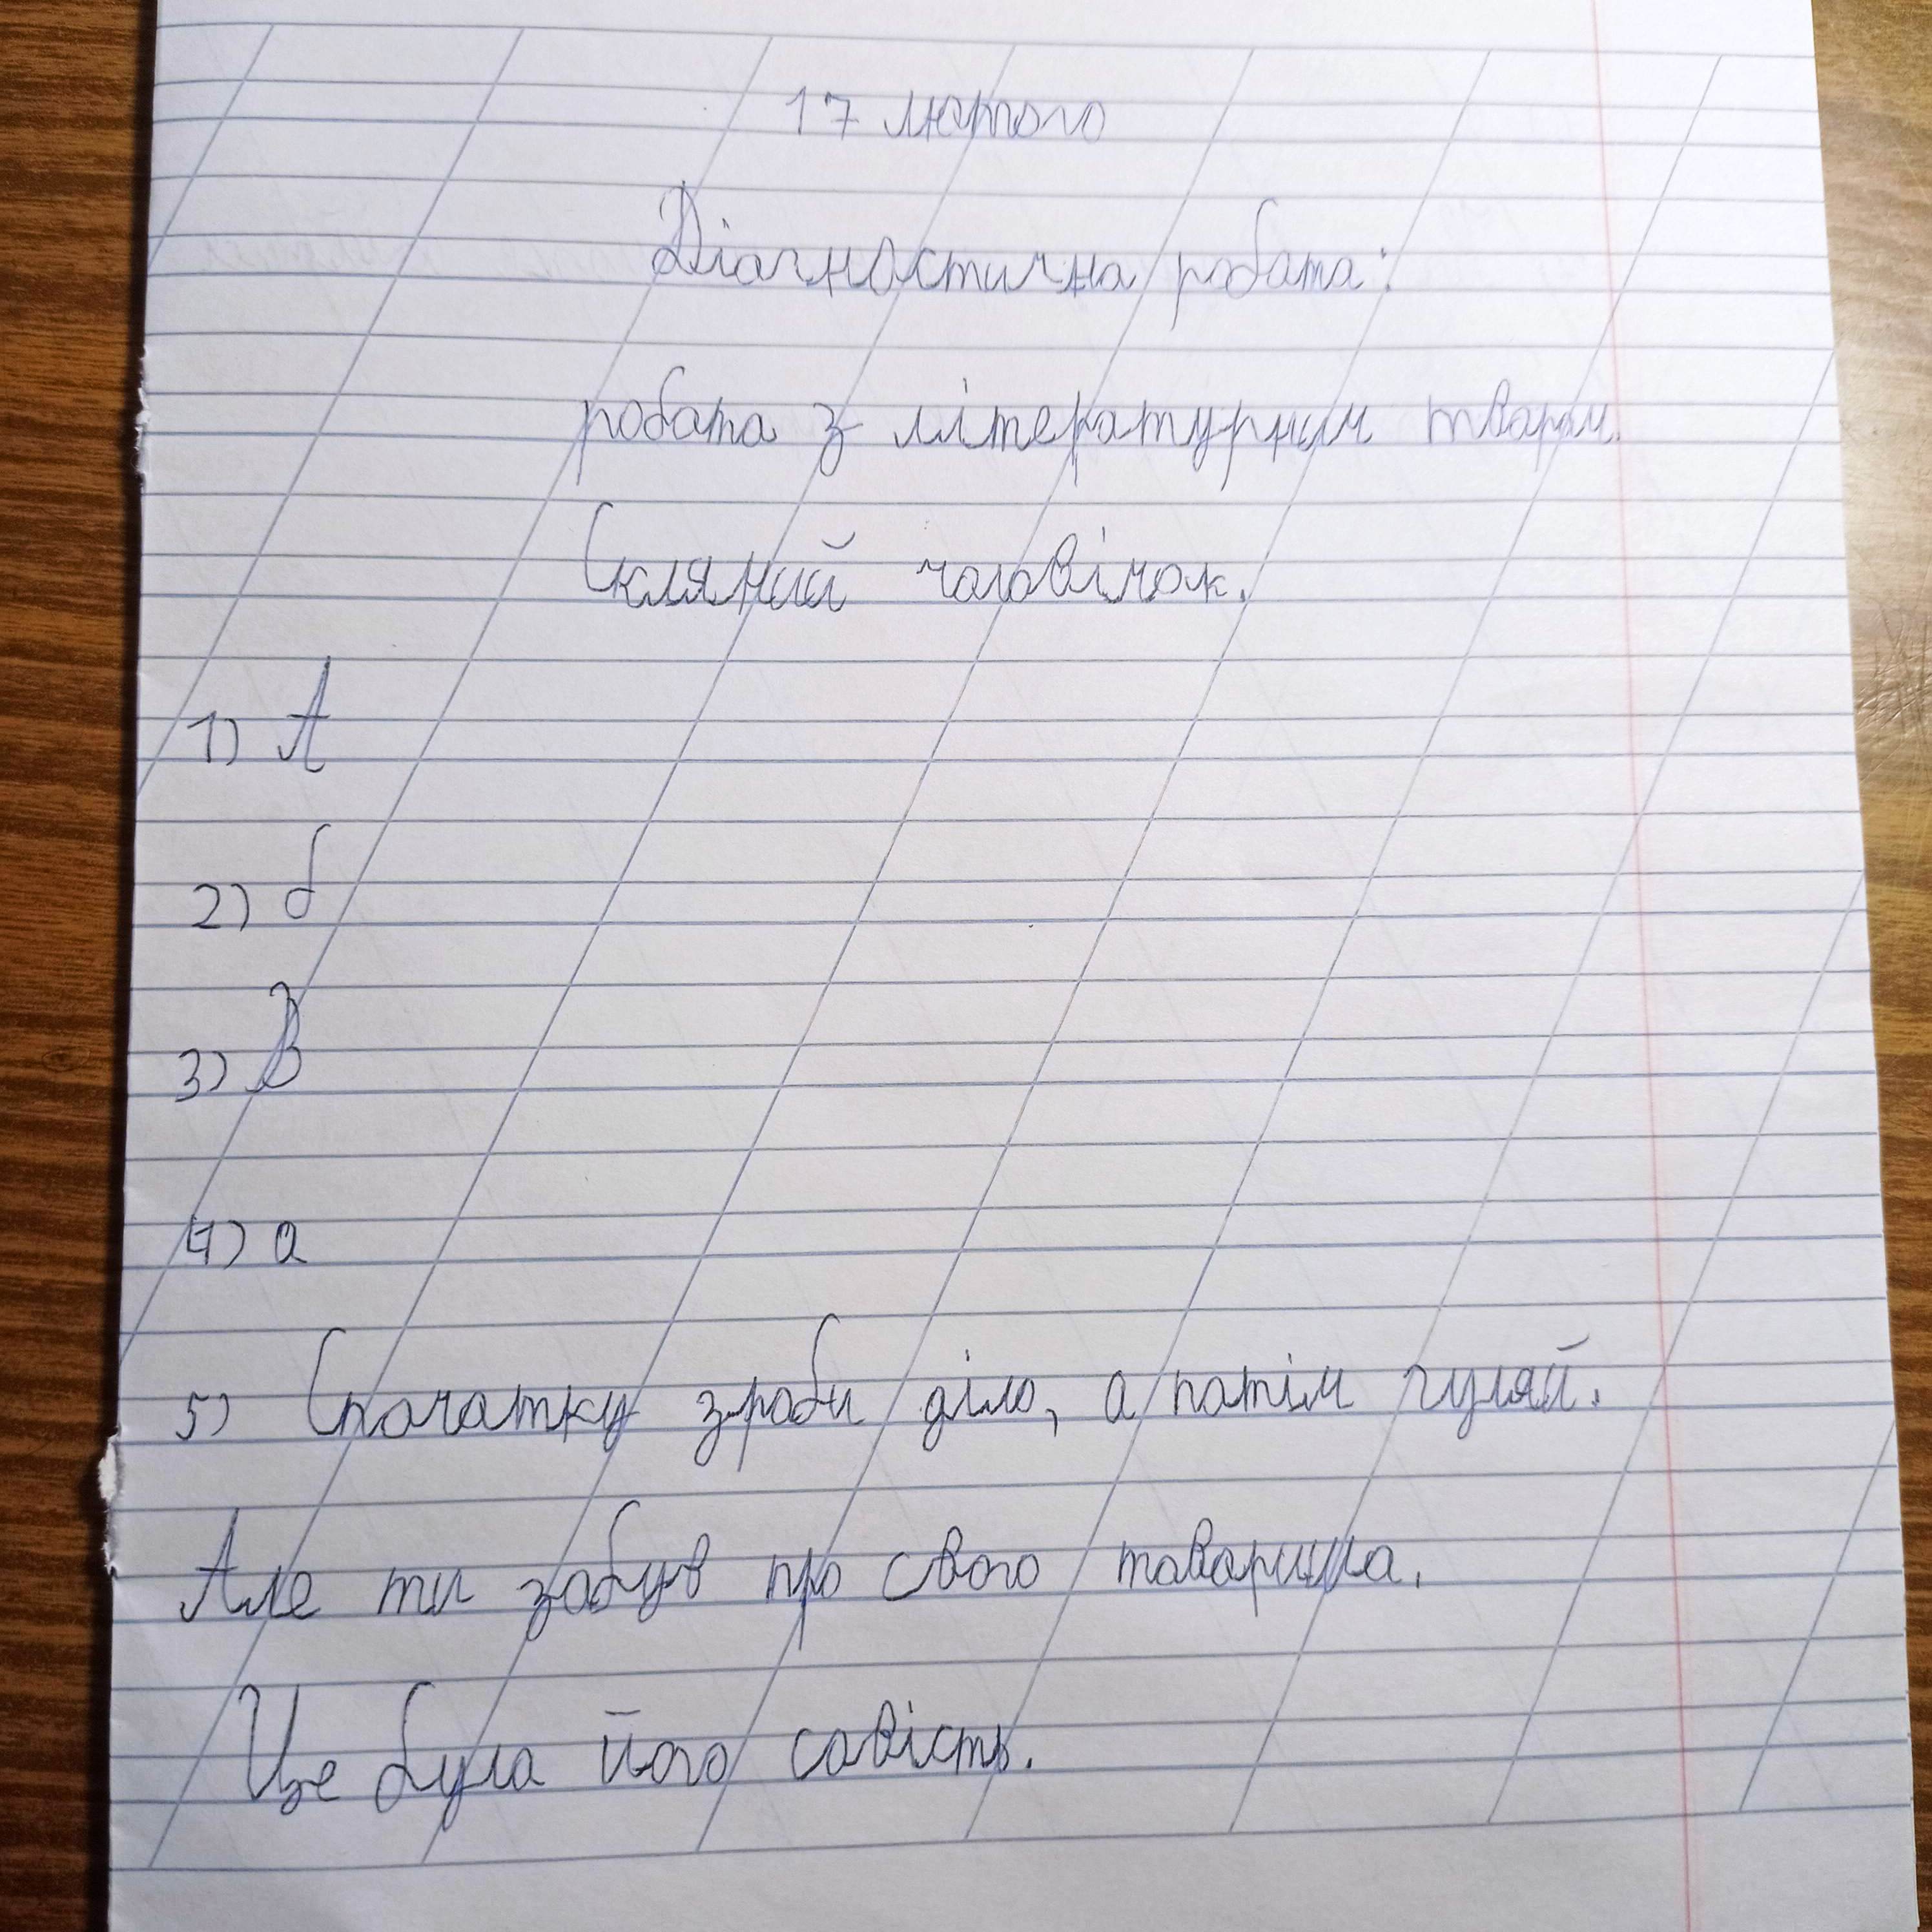 17 лютого
Діагностична робота:
робота з літературним твором.
Скляний чоловічок.
1) А
2) б
3) В
4) а
5) Спочатку зроби діло, а потім гуляй.
Але ти забув про свого товариша.
Це була його совість.